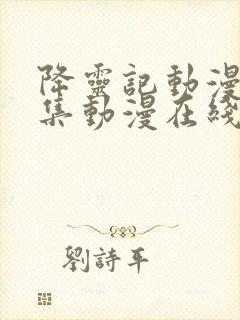 降靈記動漫
集動漫在綫
劉詩平